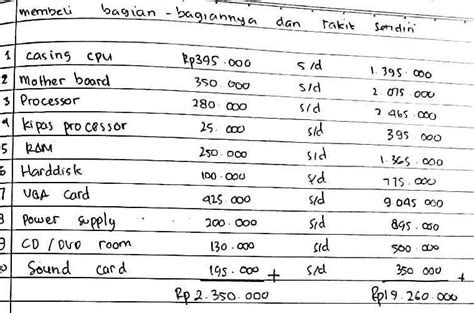 membeli bagian-bagiannya dan rakit sendiri
1 casing cpu Rp395.000 s/d 1.395.000
2 Mother board 350.000 s/d 2.075.000
3 Processor 280.000 s/d 2.465.000
4 kipas processor 25.000 s/d 395.000
5 RAM 250.000 s/d 1.365.000
6 Harddisk 100.000 s/d 775.000
7 VGA card 425.000 s/d 9.045.000
8 Power supply 200.000 s/d 895.000
9 CD / DVD room 130.000 s/d 500.000
Sound card 195.000 + s/d 350.000 +
Rp 2.350.000 Rp19.260.000